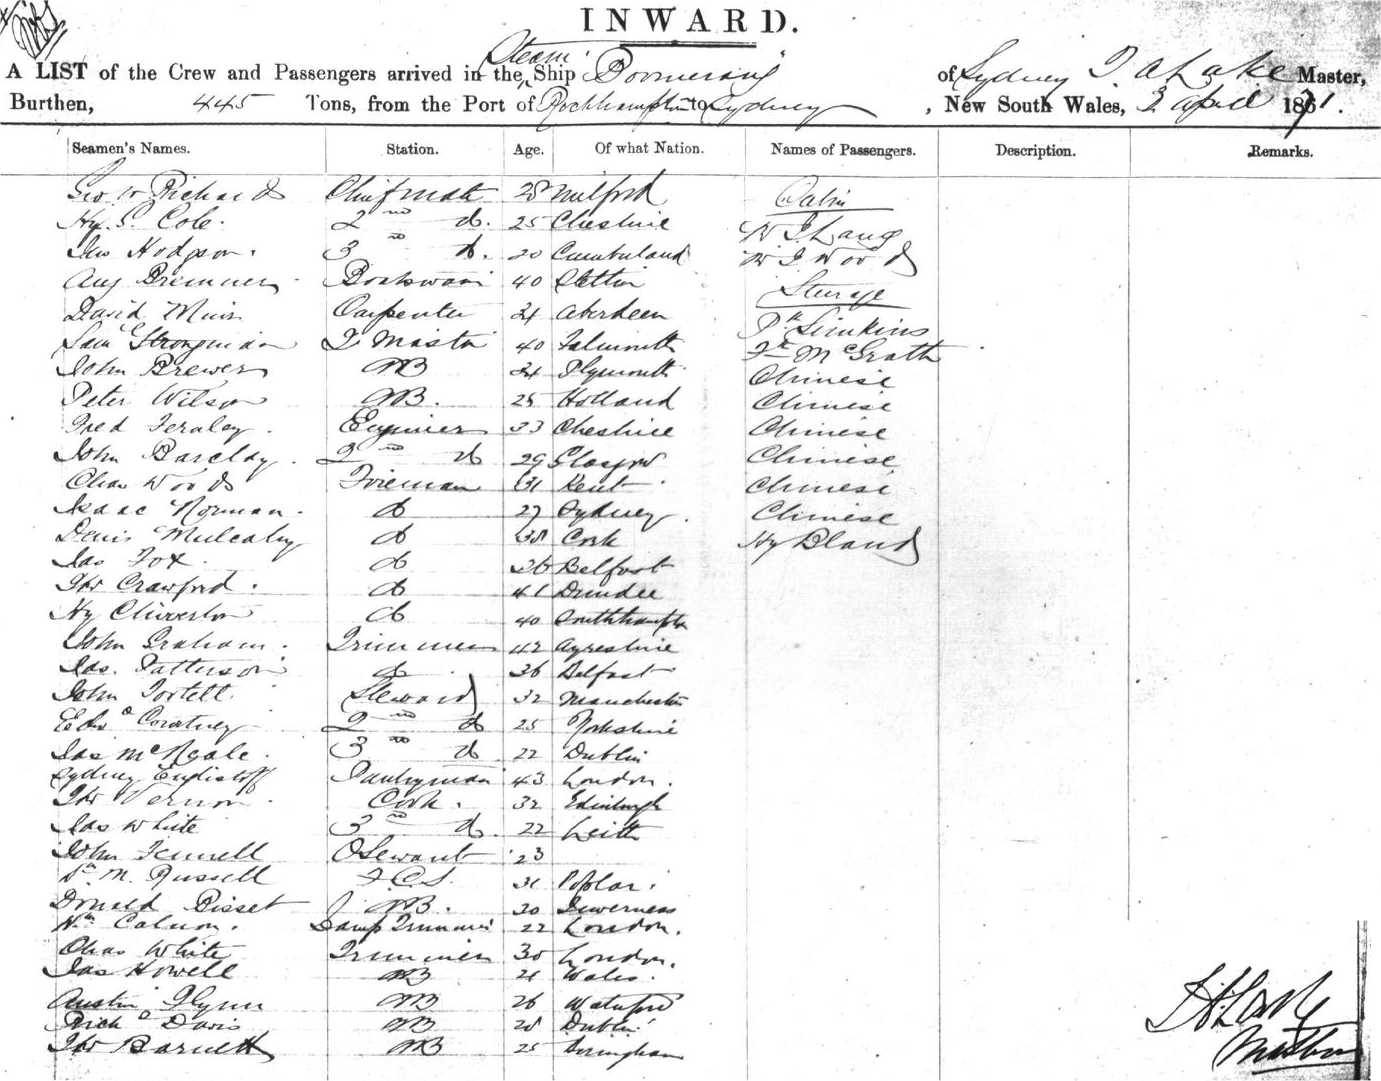 INWARD.
A LIST of the Crew and Passengers arrived in the Steam Ship Boomerang of Sydney Master,
Burthen, 445 Tons, from the Port of Rockhampton to Sydney, New South Wales, 2 April 1871.
Seamen's Names. Station. Age. Of what Nation. Names of Passengers. Description. Remarks.
Geo W Richards Chief mate 28 Milford Cabin
Hy. S. Cole. 2nd do. 25 Cheshire W J Lang
Jas Hodgson. 3rd do. 20 Cumberland W J Woods
Aug Bremner Boatswain 40 Stettin Steerage
David Muir Carpenter 24 Aberdeen Simkins
Saml 2 Master 40 Falmouth McGrath
John Brewer AB 24 Plymouth Chinese
Peter Wilson AB. 25 Holland Chinese
Fred Fernley. Engineer 33 Cheshire Chinese
John Barclay. 2nd do 29 Glasgow Chinese
Chas Woods Fireman 31 Kent Chinese
Isaac Norman. do 27 Sydney. Chinese
Denis Mulcahy do 38 Cork Hy Bland
Jas Fox. do 26 Belfast
Thos Crawford. do 41 Dundee
Hy Chiverton do 40 Southhampton
John Graham. Trimmer 42 Ayreshire
Jas. Patterson do 36 Belfast
John Tortell. Steward 32 Manchester
Edwd Courtney 2nd do 25 Yorkshire
Jas McNeale. 3rd do. 22 Dublin
Sydney Pantryman 43 London.
Thos Vernon. Cook. 32 Edinburgh
Jas White 3rd do. 22 Leith
John Fennell 23
M. Russell F.C.S. 31 Poplar.
Donald Bisset AB. 20 Inverness
Wm Calnon. Lamp Trimmer 22 London.
Chas White Trimmer 30 London.
Jas Howell AB 21 Wales.
Austin Flynn AB 26 Waterford
Richd Davis AB 28 Dublin
Thos Barnett AB 25 Birmingham
Master